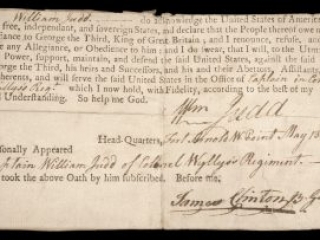 William Judd do acknowledge the United States of America
free, independant, and sovereign States, and declare that the People thereof owe
iance to George the Third, King of Great Britain; and I renounce, refuse, and
e any Allegiance, or Obedience to him; and I do swear, that I will, to the Utm
Power, support, maintain, and defend the said United States, against the said
orge the Third, his heirs and Successors, and his and their Abettors, Assistants,
herents, and will serve the said United States in the Office of Captain in Col
Regt which I now hold, with Fidelity, according to the best of my
d Understanding. So help me God.
Wm Judd
Head-Quarters, Fort Arnold W Point May 13
sonally Appeared
ptain William Judd of Colonel Wyllys's Regiment
took the above Oath by him subscribed. Before me,
James Clinton B. G